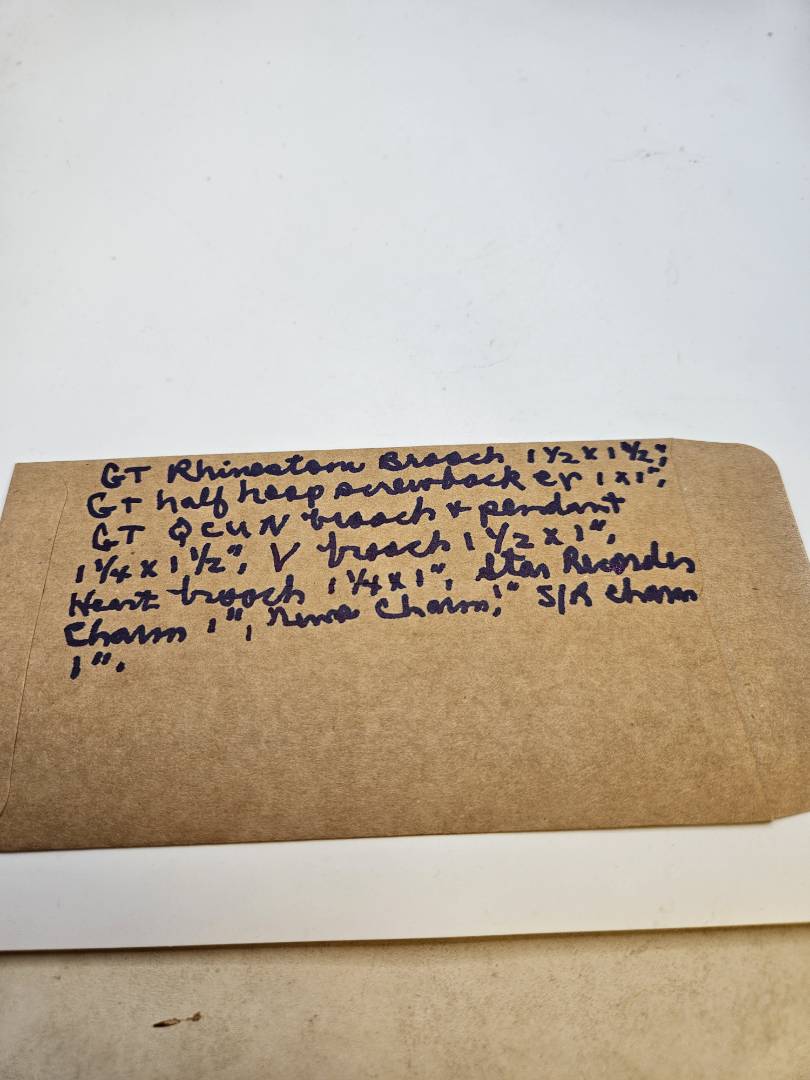 GT Rhinestone Brooch 1 1/2 x 1 1/2",
GT half hoop screwback er 1 x 1",
GT QCUN brooch & pendant
1 1/4 x 1 1/2", V brooch 1 1/2 x 1",
Heart brooch 1 1/4 x 1", Star Recorder
Charm 1", Charm 1" S/R charm
1".